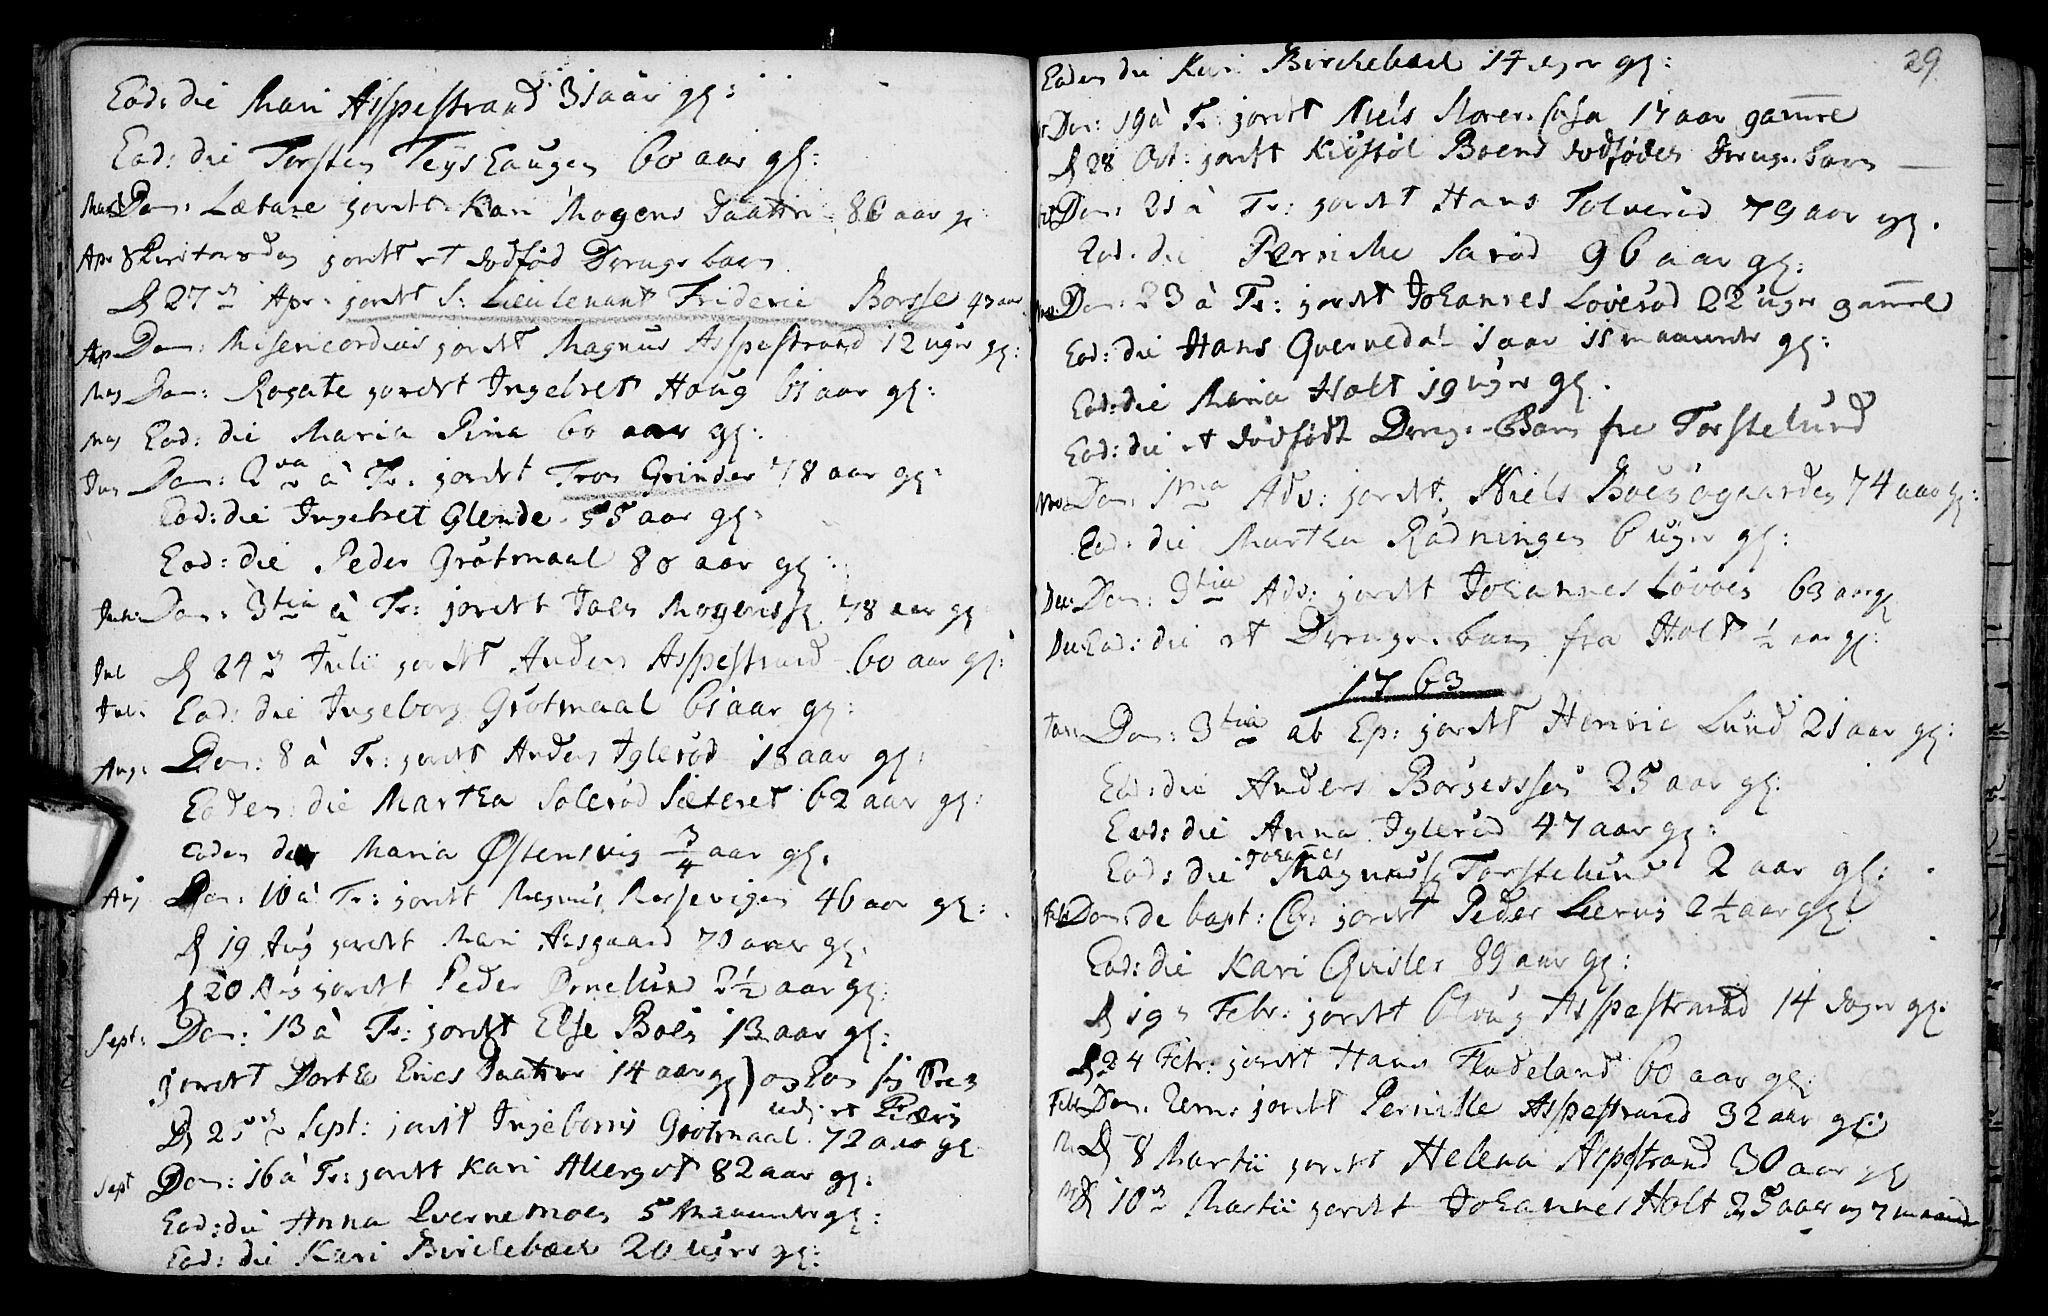 Eod: die Mari Asspestrand 31 aar gl:
Eod: die Torsten Teyshaugen 60 aar gl:
Dom: Lætare jordet Kari Mogens Daatter 86 aar g
Apr Skirtorsdag jordet et dødfød Drenge barn
D 27de Apr: jordet S: Lieutenant Frideric Borsse 43 aar
Ap Dom: Misericordias jordet Magnus Asspestrand 12 uger gl:
May Dom: Rogate jordet Ingebret Houg 61 aar gl:
May Eod: die Maria Pina 60 aar gl:
Jun Dom: 2da à Tr: jordet Tron Grinder 78 aar gl:
Eod: die Ingebret Glende 55 aar gl:
Eod: die Peder Grøtmaal 80 aar gl:
Dom: 3tia à Tr: jordet Joen Mogenss. 78 aar gl
Jul D 24de Julii jordet Anders Asspestrand 60 aar gl:
Jul: Eod: die Ingeborg Grøtmaal 61 aar gl:
Aug: Dom: 8 à Tr: jordet Anders Iglerød 18 aar gl:
Eodem die Martha Solerød Sæteret 62 aar gl:
Eodem die Maria Østensvig 3/4 aar gl.
Aug Dom: 10 à Tr: jordet Magnus 46 aar gl:
D 19 Aug jordet Mari Aasgaard 70 aar gl.
D 20 Aug jordet Peder Ornelund 2½ aar gl:
Sept: Dom: 13 à Tr: jordet Else Boën 13 aar gl:
jordet Dorthe Erics Daatter 14 aar gl)
D 25de Sept: jordet Ingeborg Grøtmaal 72 aar gl
Sept Dom: 16 à Tr: jordet Kari Allergot 82 aar gl:
Eod: die Anna Qvernemoen 5 Maaneder gl:
Eod: die Kari Birchebæch 20 uger gl:
29
Eodem die Kari Birchebæch 17 uger gl:
Dom: 19 à Tr: jordet Niels 14 aar gammel
D 28 Oct: jordet Kiøstol Boens dødføden Drenge barn
Dom: 21 à Tr: jordet Hans Tolverød 79 aar gl.
Eod: die Pernille Sarød 96 aar gl:
Dom: 23 à Tr: jordet Johannes Løverød 22 uger gammel
Eod: die Hans Qvernedal 1 aar 11 maaneder gl:
Eod: die Maria Holt 19 uger gl.
Eod: die et dødfødt Drenge-Barn fra Torstelund
Nov Dom: 1ma Adv: jordet Niels 74 aar gl:
Eod: die Martha Rødningen 6 uger gl:
Dec: Dom: 3tia Adv: jordet Johannes Løvoen 63 aar gl
Dec: Eod: die et Drenge-barn fra Holt ½ aar gl:
1763
Jan: Dom: 3tia ab Ep: jordet Henric Lund 21 aar gl:
Eod: die Anders Borgessen 25 aar gl:
Eod: die Anna Iglerød 47 aar gl:
Eod: die Johannes Magnuss. Torstelund 2 aar gl:
Feb Dom: de bapt: Chr: jordet Peder Leervig 2½ aar gl:
Eod: die Kari Qvisler 89 aar gl:
D 19de Febr: jordet Oloug Asspestrand 14 dager gl:
D 24 Febr: jordet Hans Fladeland 60 aar gl:
Feb Dom. Rem: jordet Pernille Asspestrand 32 aar gl:
M D 8 Martii jordet Helena Aspestrand 30 aar gl
M D 10de Martii jordet Johannes Holt 25 aar og 7 maaneder